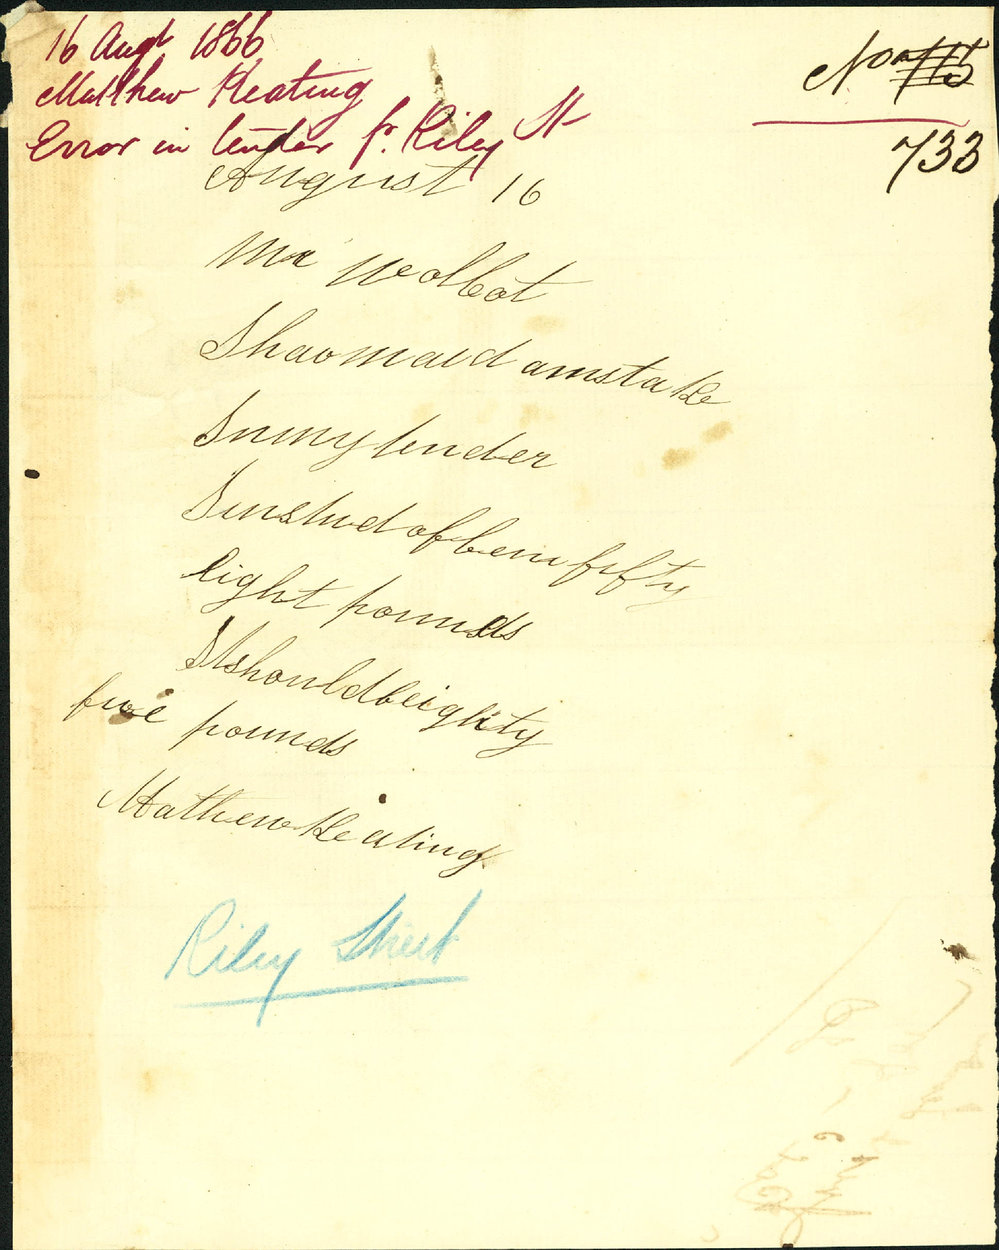 16 Augt 1866
Matthew Keating
Error in tender fr. Riley St
No
733
August 16
Mr Wolbot
I hav maid a mstake
In my tender
Instud of bein fifty
eight pounds
It should be eighty
five pounds
Mathew Keating
Riley Street